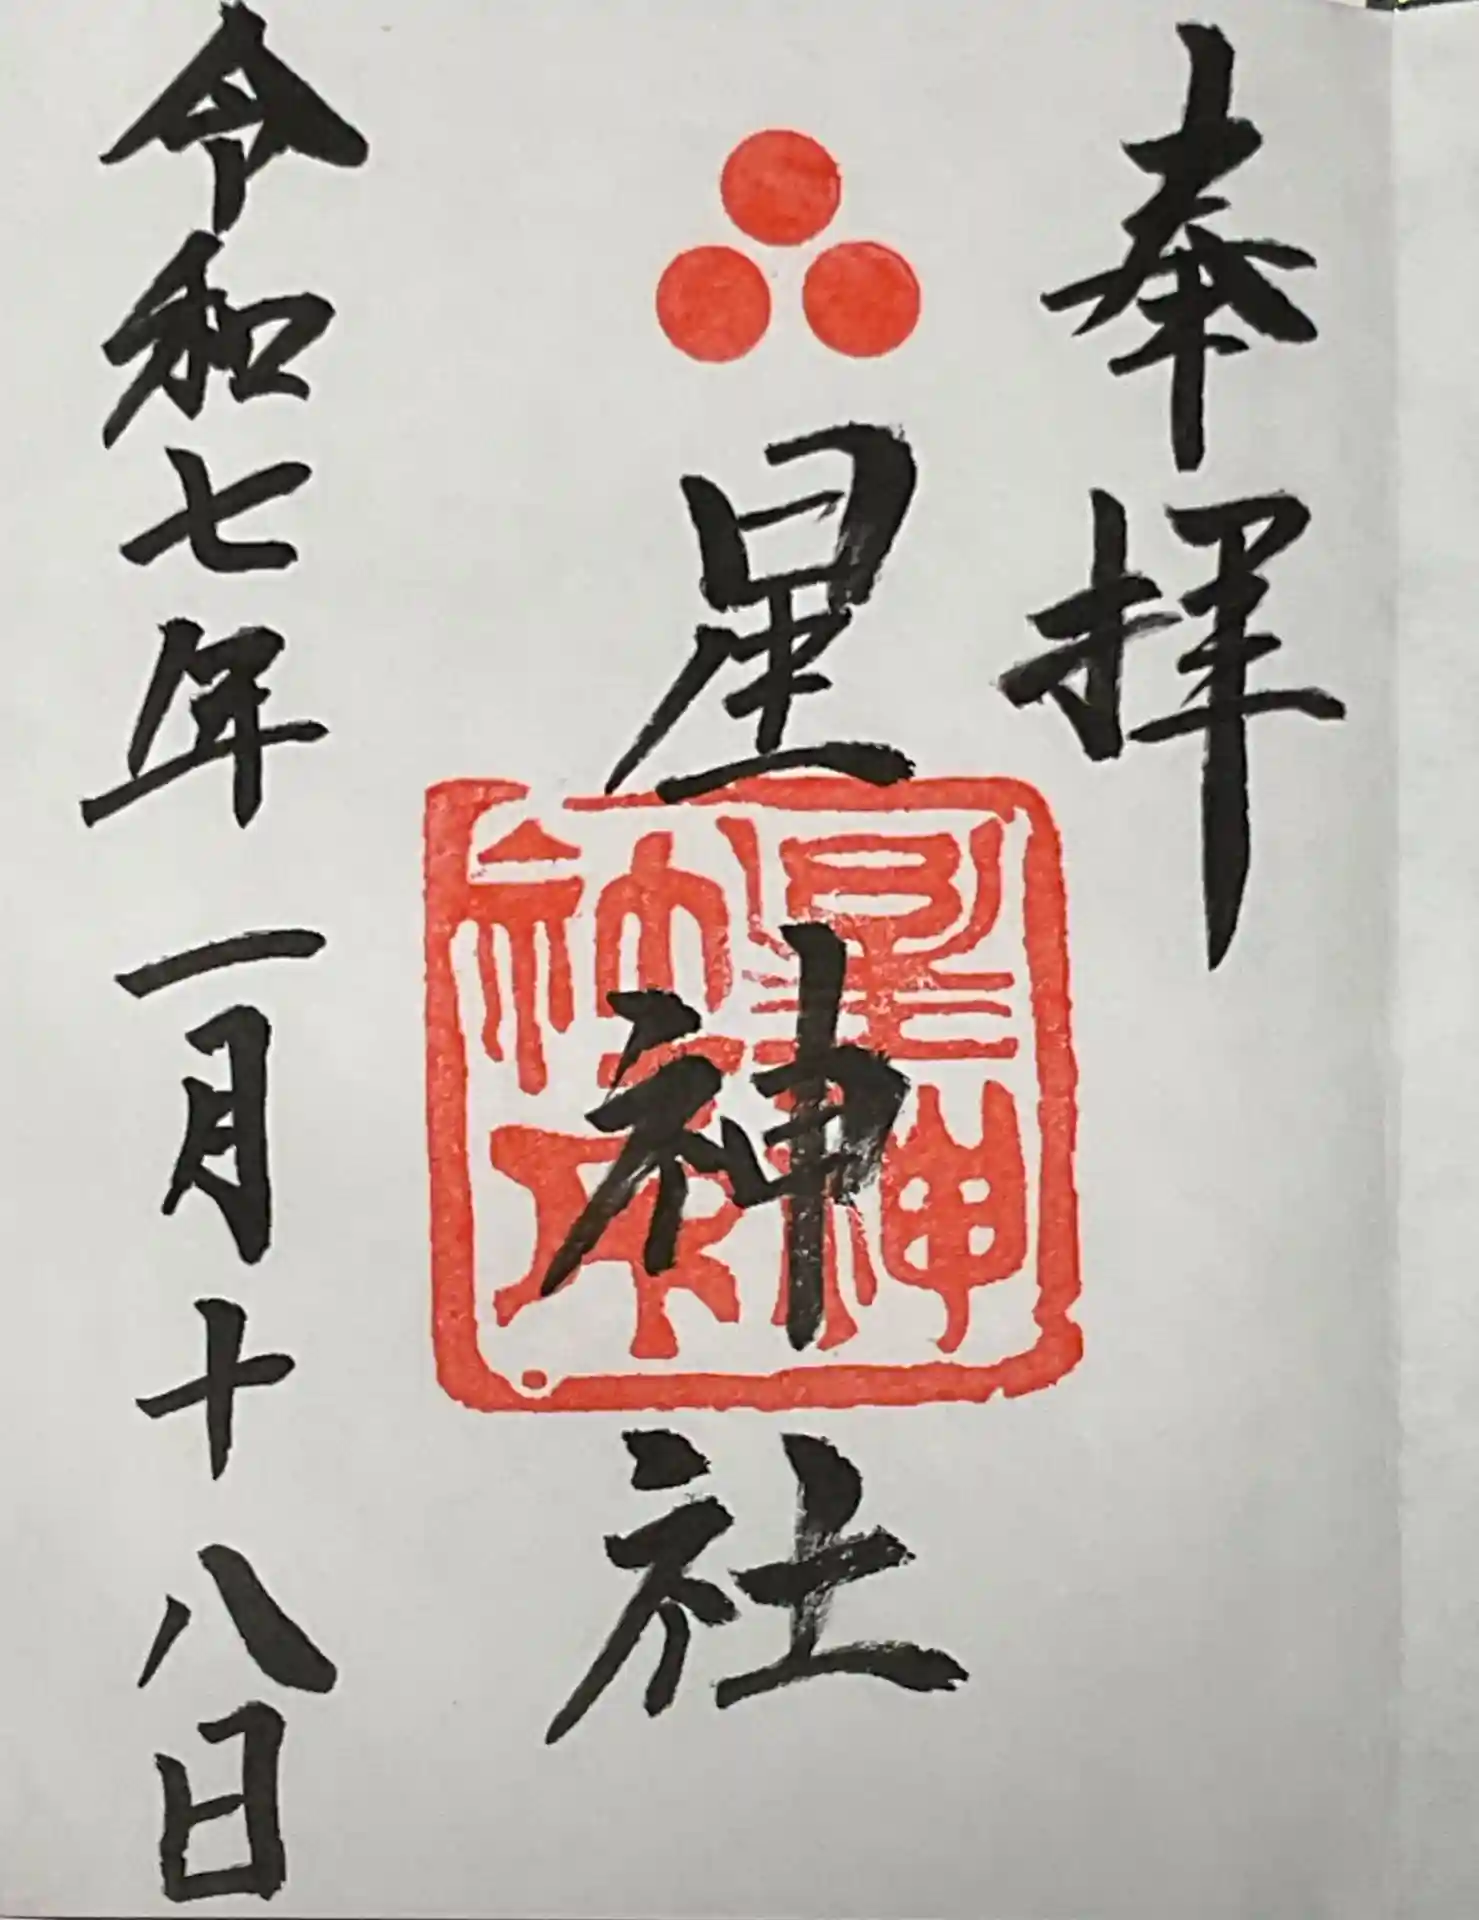 奉拝
星神社
星神社印
令和七年一月十八日